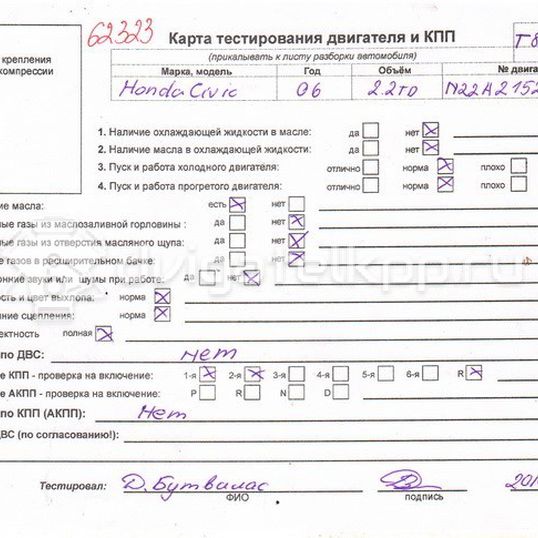 62323 Карта тестирования двигателя и КПП Т8
крепления (прикалывать к листу разборки автомобиля)
компрессии Марка, модель Год Объём № двига
Honda Civic 06 2.2TD N22A2 152
1. Наличие охлаждающей жидкости в масле: да нет
2. Наличие масла в охлаждающей жидкости: да нет
3. Пуск и работа холодного двигателя: отлично норма плохо
4. Пуск и работа прогретого двигателя: отлично норма плохо
ие масла: есть нет
ные газы из маслозаливной горловины : да нет
ные газы из отверстия масляного щупа: да нет
е газов в расширительном бачке: да нет
онние звуки или шумы при работе: да нет
ость и цвет выхлопа: норма
яние сцепления: норма
ектность полная
по ДВС: нет
е КПП - проверка на включение: 1-я 2-я 3-я 4-я 5-я 6-я R
е АКПП - проверка на включение: P R N D
по КПП (АКПП): Нет
ДВС (по согласованию!):
Тестировал: Д. Бутвилас 201
ФИО подпись
dvigatelkpp.ru